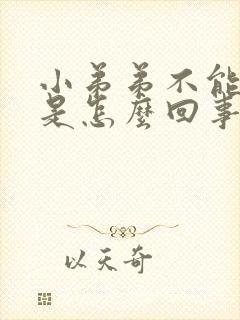 小弟弟不能
是怎麼回事
以天奇